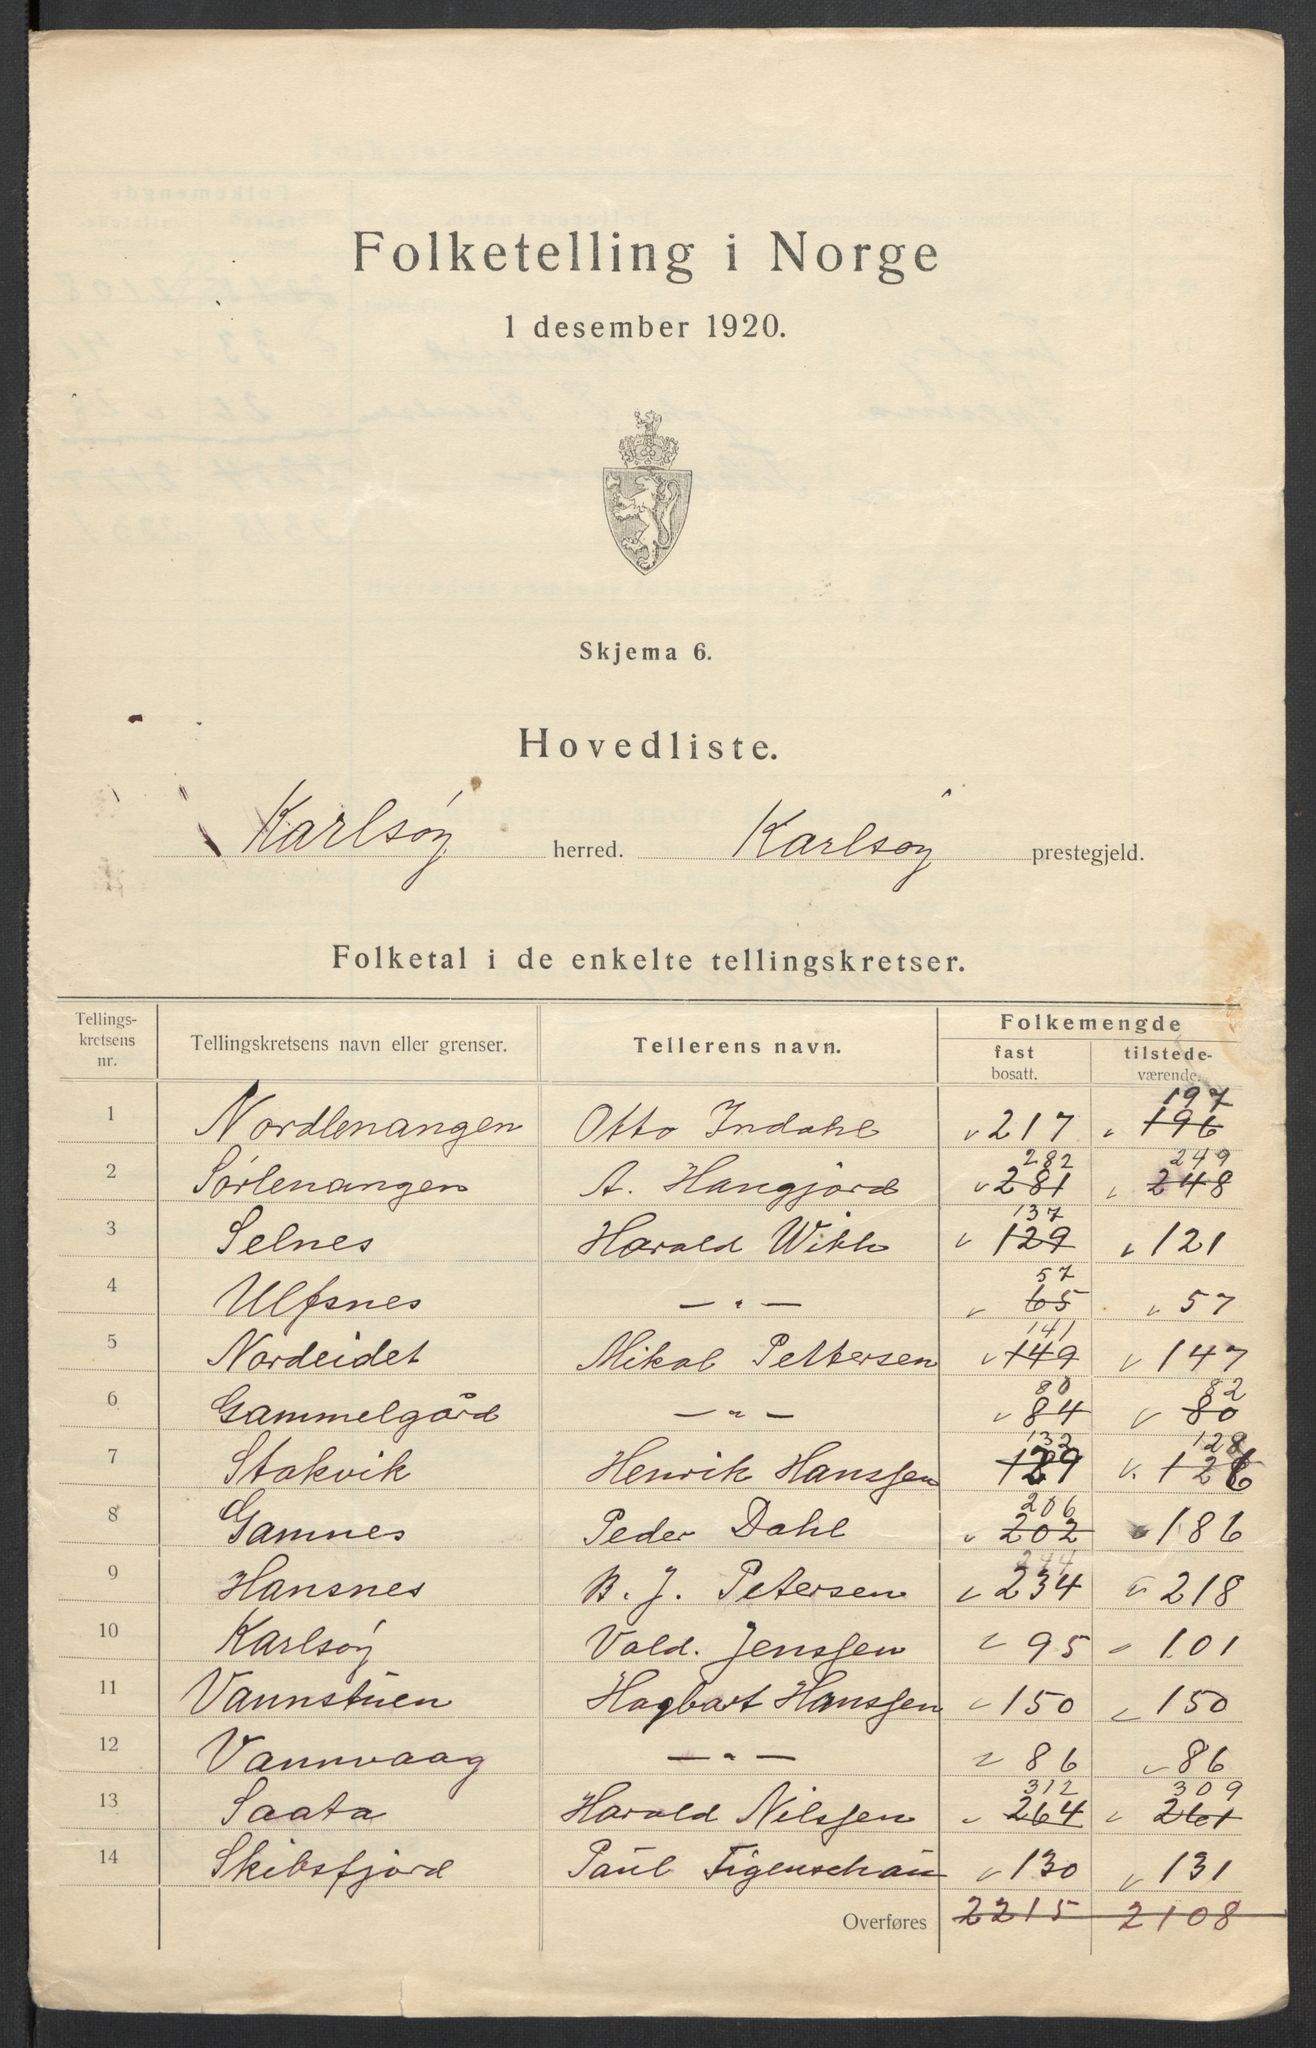 Folketelling i Norge
1 desember 1920.
Skjema 6.
Hovedliste.
Karlsøy herred. Karlsøy prestegjeld.
Folketal i de enkelte tellingskretser.
Tellings-kretsens nr. Tellingskretsens navn eller grenser. Tellerens navn. Folkemengde fast bosatt. tilstede-værende.
197
1 Nordlenangen Otto Indahl 217 196
282 249
2 Sørlenangen A. Hangjord 281 248
137
3 Selnes Harald Wikh 129 121
57
4 Ulfsnes — " — 65 57
141
5 Nordeidet Mikal Pettersen 149 147
80 82
6 Gammelgård — " — 84 80
132 128
7 Stakvik Henrik Hanssen 129 126
206
8 Gamnes Peder Dahl 202 186
244
9 Hansnes B. J. Petersen 234 218
10 Karlsøy Vald. Jenssen 95 101
11 Vannstuen Hagbart Hanssen 150 150
12 Vannvaag — " — 86 86
312 309
13 Saata Harald Nilssen 264 261
14 Skibsfjord Paul Figenschau 130 131
Overføres 2215 2108